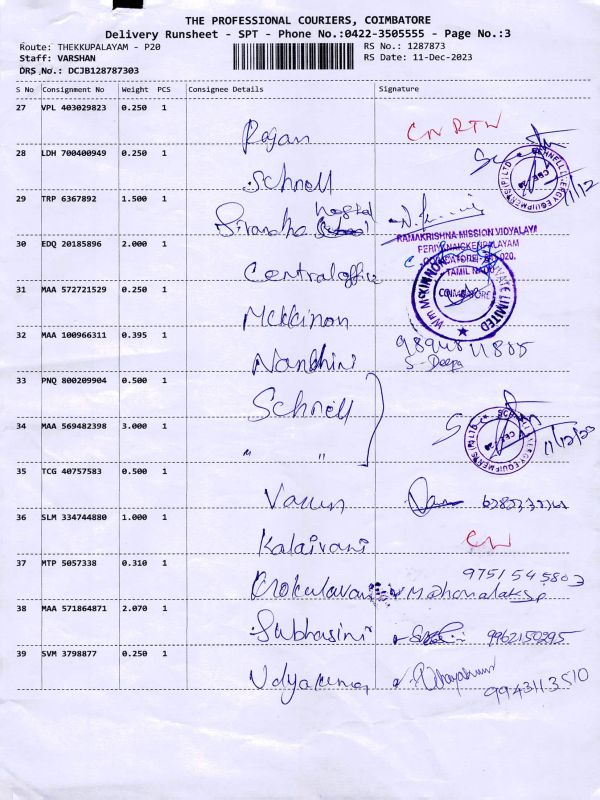 THE PROFESSIONAL COURIERS, COIMBATORE
Delivery Runsheet - SPT - Phone No.:0422-3505555 - Page No.:3
Route: THEKKUPALAYAM - P20
Staff: VARSHAN
DRS No.: DCJB128787303
RS No.: 1287873
RS Date: 11-Dec-2023
S No Consignment No Weight PCS Consignee Details Signature
27 VPL 403029823 0.250 1
Rajan CN RTN
28 LDH 700400949 0.250 1
Schnell
29 TRP 6367892 1.500 1
hostel
30 EDQ 20185896 2.000 1
RAMAKRISHNA MISSION VIDYALAYA
PERIYANAICKENPALAYAM
COIMBATORE - 641 020.
TAMIL NADU
Central office
31 MAA 572721529 0.250 1
COIMBATORE
Mckkinon
32 MAA 100966311 0.395 1
Nandhini
S. Deepa
33 PNQ 800209904 0.500 1
Schnell
34 MAA 569482398 3.000 1
" "
35 TCG 40757583 0.500 1
Varun
36 SLM 334744880 1.000 1
Kalaivani CN
37 MTP 5057338 0.310 1
9751545803
38 MAA 571864871 2.070 1
Subhasini 9962150295
39 SVM 3798877 0.250 1
9943113510